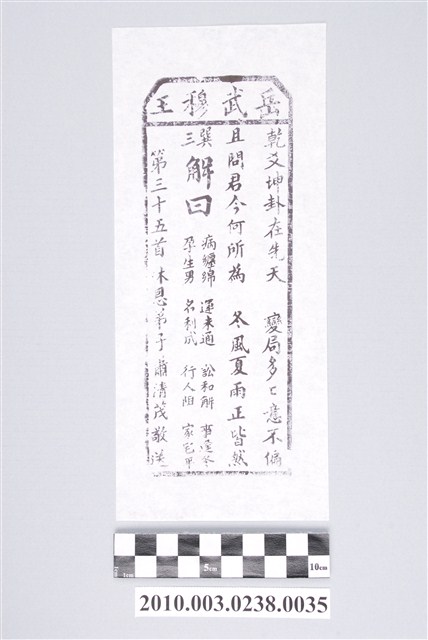 岳武穆王
乾爻坤卦在先天 變局多〻意不偏
且問君今何所為 冬風夏雨正皆然
巽三
解曰
病纏綿 運未通 訟和解
孕生男 名利成 行人阻 家宅平
第三十五首 沐恩弟子蕭清茂敬送
5cm
10cm
2010.003.0238.0035